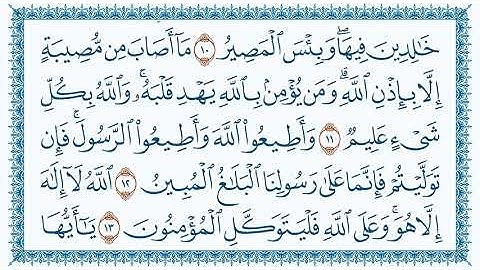 خَٰلِدِينَ فِيهَاۖ وَبِئْسَ ٱلْمَصِيرُ ١٠ مَآ أَصَابَ مِن مُّصِيبَةٍ
إِلَّا بِإِذْنِ ٱللَّهِۗ وَمَن يُؤْمِنۢ بِٱللَّهِ يَهْدِ قَلْبَهُۥۚ وَٱللَّهُ بِكُلِّ
شَىْءٍ عَلِيمٌ ١١ وَأَطِيعُوا۟ ٱللَّهَ وَأَطِيعُوا۟ ٱلرَّسُولَۚ فَإِن
تَوَلَّيْتُمْ فَإِنَّمَا عَلَىٰ رَسُولِنَا ٱلْبَلَٰغُ ٱلْمُبِينُ ١٢ ٱللَّهُ لَآ إِلَٰهَ
إِلَّا هُوَۚ وَعَلَى ٱللَّهِ فَلْيَتَوَكَّلِ ٱلْمُؤْمِنُونَ ١٣ يَٰٓأَيُّهَا